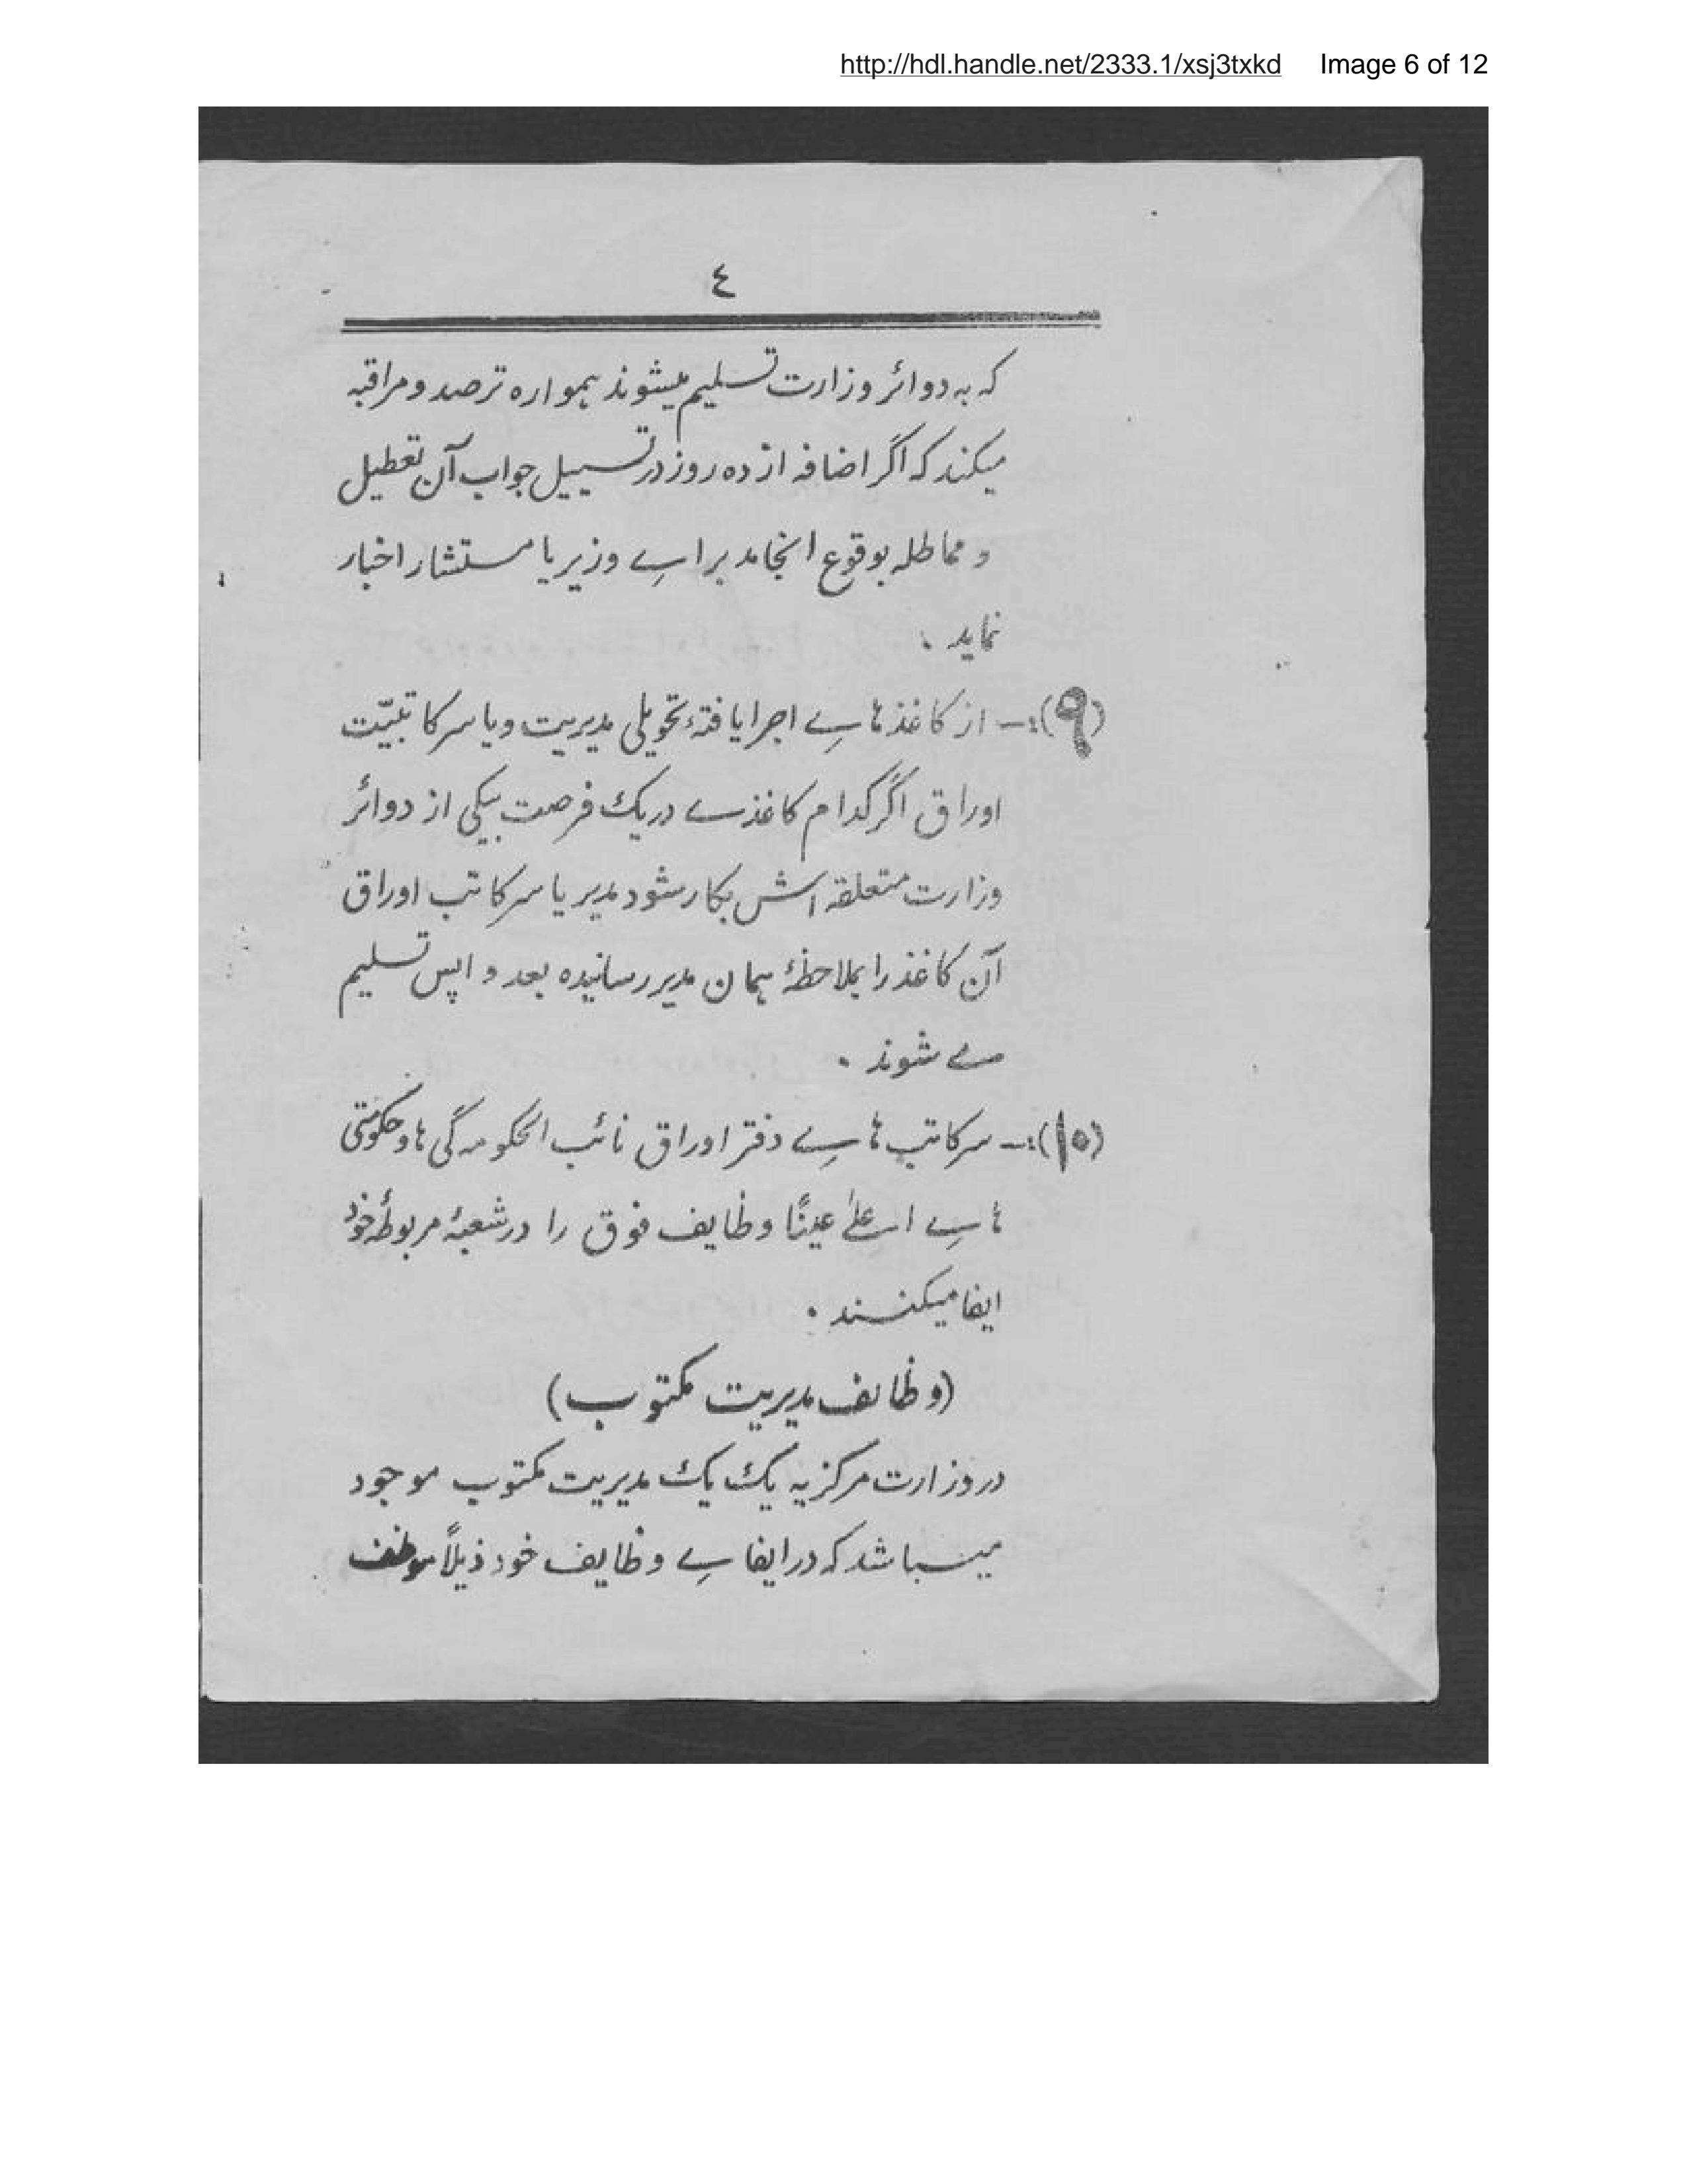 http://hdl.handle.net/2333.1/xsj3txkd Image 6 of 12
٤
که به دوائر وزارت تسلیم میشوند همواره ترصد و مراقبه
میکند که اگر اضافه از ده روز در تسبیل جواب آن تعطیل
و مماطله بوقوع انجامد برای وزیر یا مستشار اخبار
نماید .
(۹):- از کاغذ های اجرا یافتهٔ تحویلی مدیریت و یا سرکاتبیّت
اوراق اگر کدام کاغذی در یک فرصت بیکی از دوائر
وزارت متعلقه اش بکار شود مدیر یا سرکاتب اوراق
آن کاغذ را بملاحظهٔ همان مدیر رسانیده بعد واپس تسلیم
می شوند .
(۱۰):- سرکاتب های دفتر اوراق نائب الحکومه گی ها و حکومتی
های اعلیٰ عینًا وظایف فوق را در شعبهٔ مربوطهٔ خود
ایفا میکنند .
(وظائف مدیریت مکتوب)
در وزارت مرکزیه یک یک مدیریت مکتوب موجود
میباشد که در ایفای وظایف خود ذیلاً موظف